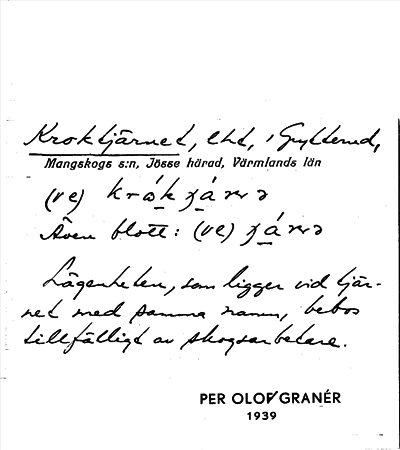 Kroktjärnet, lht, i Grytterud,
Mangskogs s:n, Jösse härad, Värmlands län
(ve) krȧk ʒánə
Även blott: (ve) ʒánə
Lägenheten, som ligger vid tjär-
net med samma namn, bebos
tillfälligt av skogsarbetare.
PER OLOF GRANÉR
1939